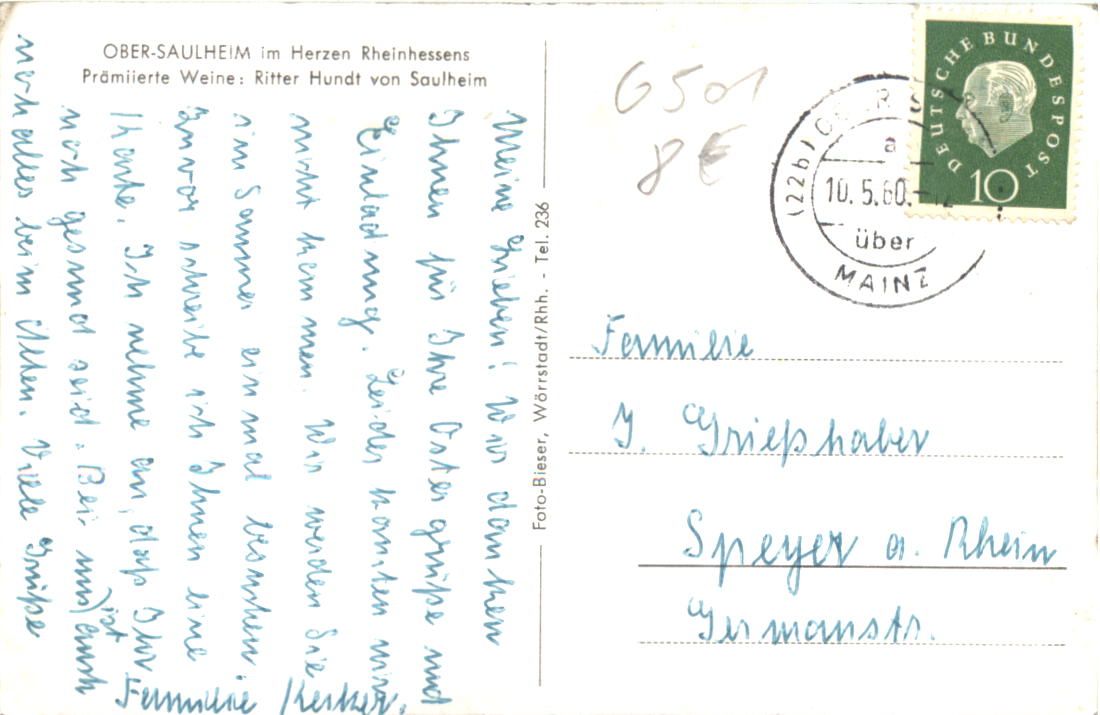 OBER-SAULHEIM im Herzen Rheinhessens
Prämiierte Weine: Ritter Hundt von Saulheim
Meine Lieben! Wir danken
Ihnen für Ihre Ostergrüße und
Einladung. Leider konnten wir
nicht kommen. Wir werden Sie
im Sommer einmal besuchen
Zuvor schreibe ich Ihnen eine
Karte. Ich nehme an, daß Ihr
noch gesund seid. Bei uns ist auch
noch alles beim Alten. Viele Grüße
Familie
Foto-Bieser, Wörrstadt/Rhh. - Tel. 236
6501
8€
DEUTSCHE BUNDESPOST
10
(22b) OBER
a
10.5.60.-12
über
MAINZ
Familie
J. Grießhaber
Speyer a. Rhein
Germanstr.